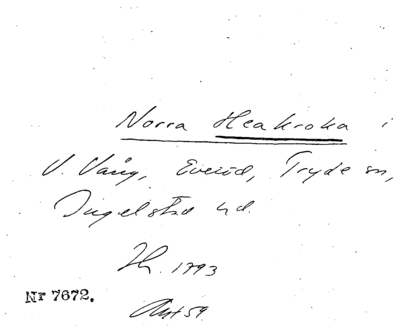 Norra Heakroka i
V. Vång, Everöd, Tryde sn,
Ingelstad hd.
Jh. 1793
Nr 7672.